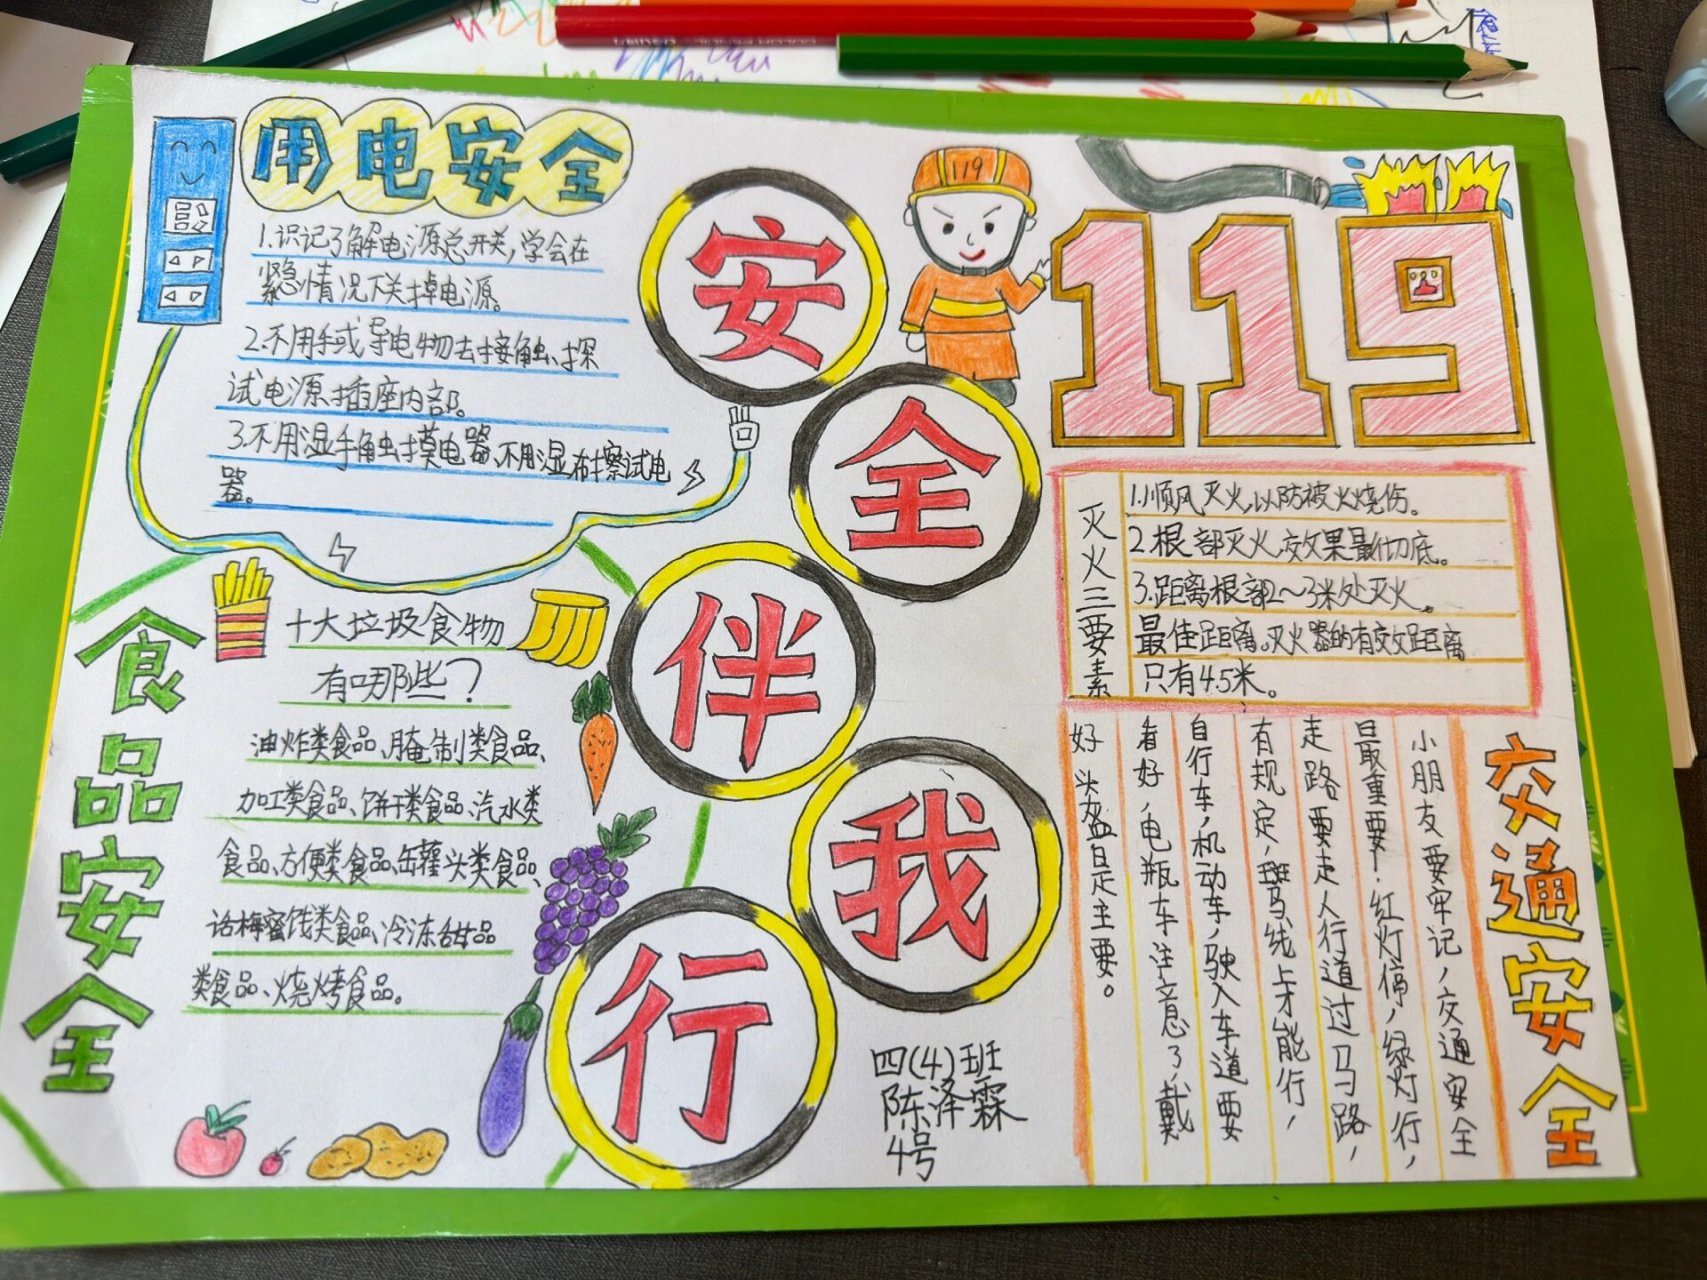 用电安全
1.识记了解电源总开关,学会在
紧急情况下关掉电源。
2.不用手或导电物去接触、探
试电源插座内部。
3.不用湿手触摸电器、不用湿布擦试电
器。
安
全
伴
我
行
119
119
灭火三要素
1.顺风灭火,以防被火烧伤。
2.根部灭火,效果最彻底。
3.距离根部2~3米处灭火。
最佳距离。灭火器的有效距离
只有4.5米。
食品安全
十大垃圾食物
有哪些?
油炸类食品、腌制类食品、
加工类食品、饼干类食品、汽水类
食品、方便类食品、缶罐头类食品、
话梅蜜饯类食品、冷冻甜品
类食品、烧烤食品。
交通安全
小朋友要牢记,交通安全
是最重要!红灯停,绿灯行,
走路要走人行道过马路,
有规定,斑马线上才能行,
自行车,机动车,驶入车道要
看好,电瓶车注意了,戴
好头盔是主要。
四(4)班
陈泽霖
4号